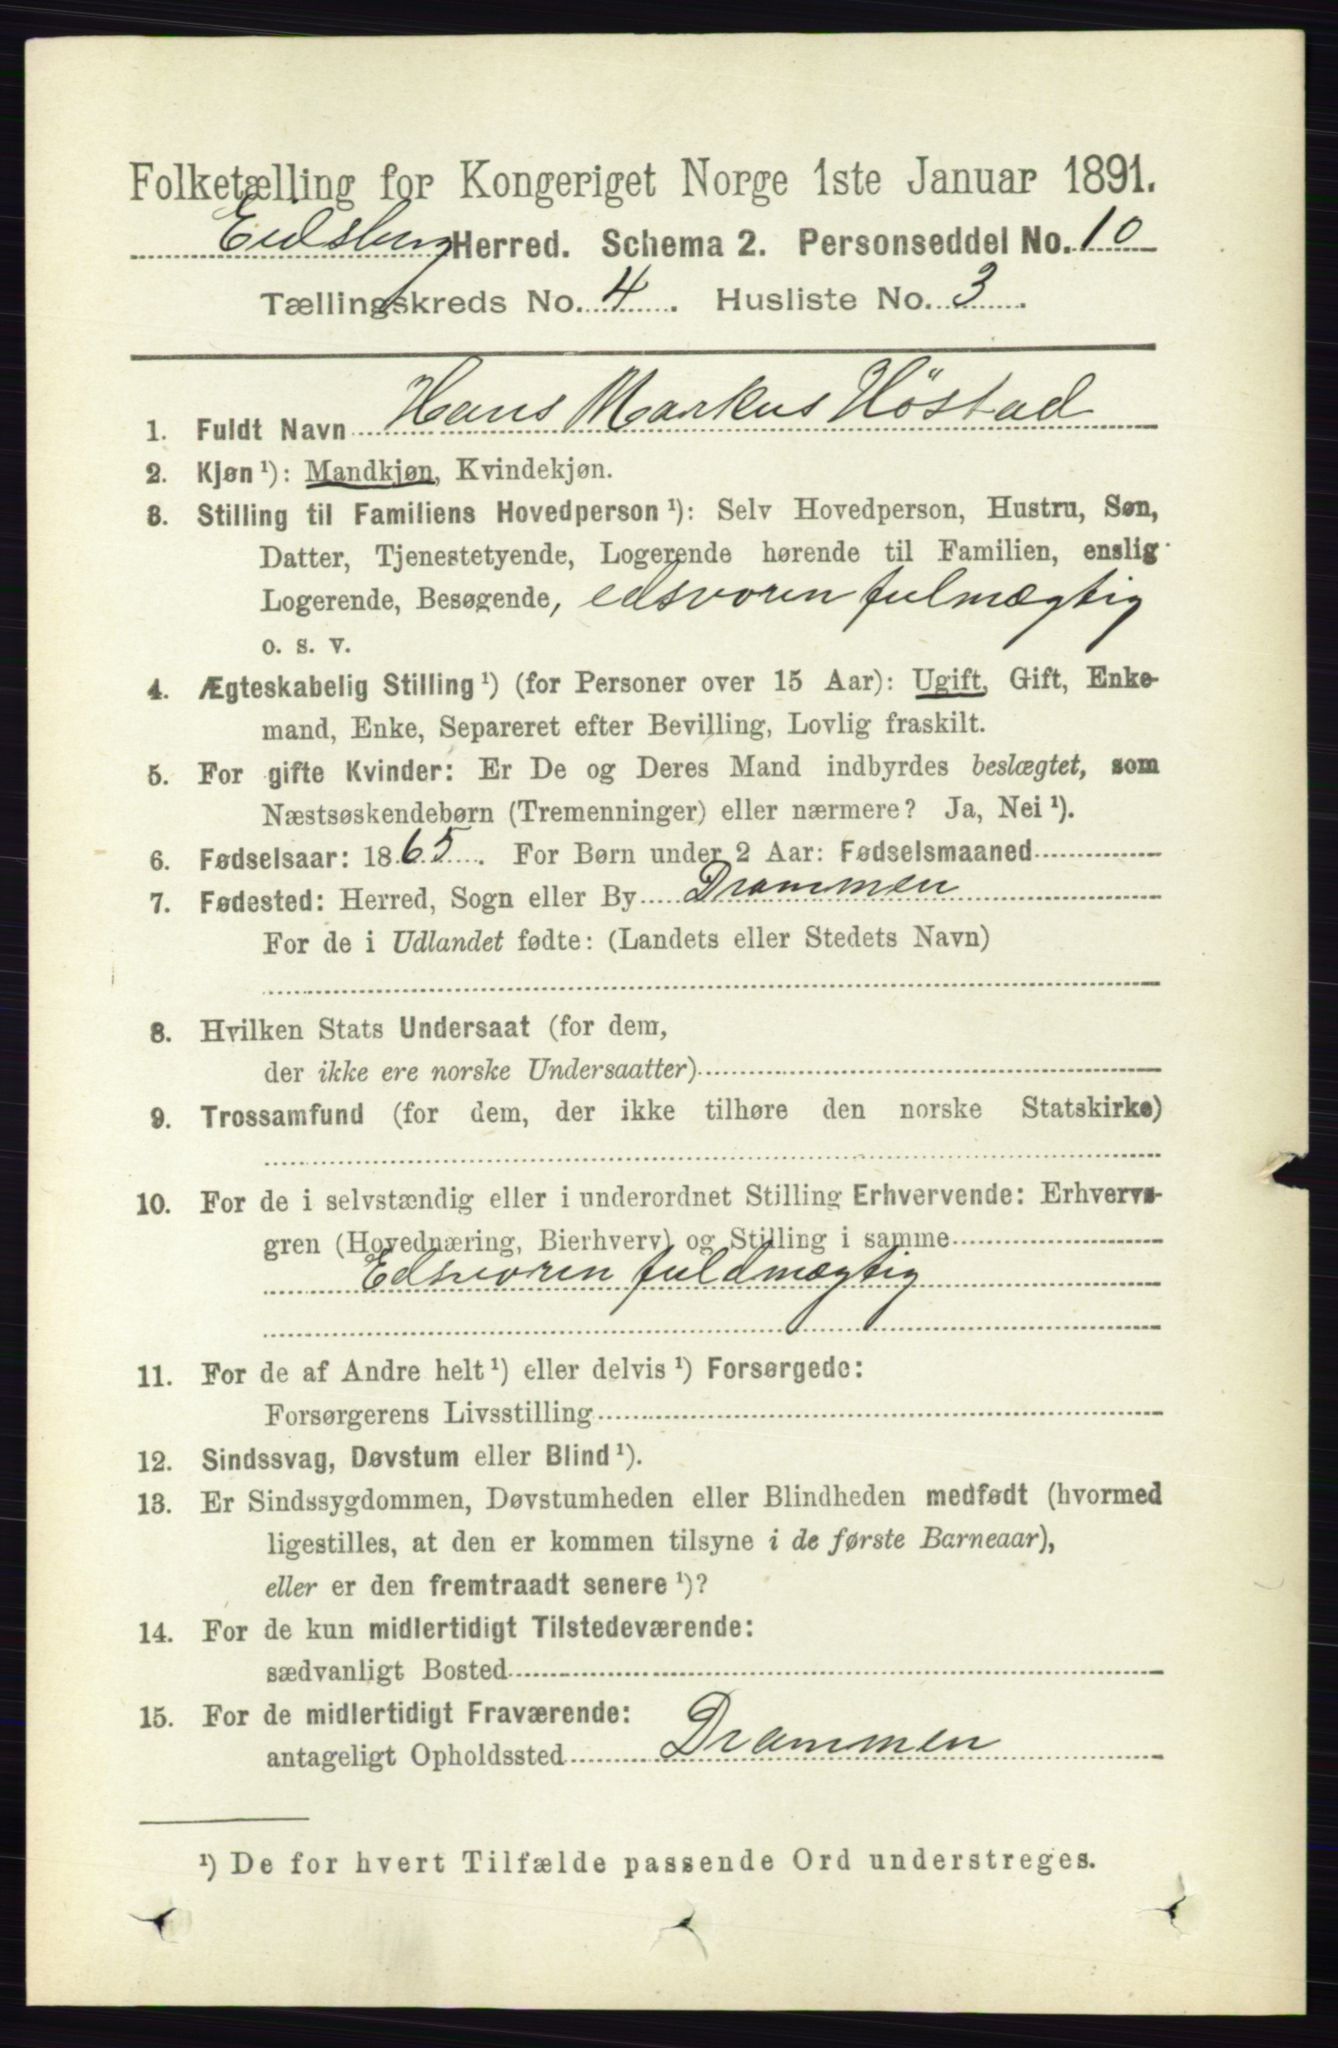 Folketælling for Kongeriget Norge 1ste Januar 1891.
Eidsberg Herred. Schema 2. Personseddel No. 10
Tællingskreds No. 4. Husliste No. 3.
1. Fuldt Navn Hans Markus Höstad
2. Kjøn ¹): Mandkjøn, Kvindekjøn.
3. Stilling til Familiens Hovedperson ¹): Selv Hovedperson, Hustru, Søn,
Datter, Tjenestetyende, Logerende hørende til Familien, enslig
Logerende, Besøgende, edsvoren fulmægtig
o. s. v.
4. Ægteskabelig Stilling ¹) (for Personer over 15 Aar): Ugift, Gift, Enke-
mand, Enke, Separeret efter Bevilling, Lovlig fraskilt.
5. For gifte Kvinder: Er De og Deres Mand indbyrdes beslægtet, som
Næstsøskendebørn (Tremenninger) eller nærmere? Ja, Nei ¹).
6. Fødselsaar: 1865. For Børn under 2 Aar: Fødselsmaaned
7. Fødested: Herred, Sogn eller By Drammen
For de i Udlandet fødte: (Landets eller Stedets Navn)
8. Hvilken Stats Undersaat (for dem,
der ikke ere norske Undersaatter)
9. Trossamfund (for dem, der ikke tilhøre den norske Statskirke)
10. For de i selvstændig eller i underordnet Stilling Erhvervende: Erhvervs-
gren (Hovednæring, Bierhverv) og Stilling i samme
Edsvoren fuldmægtig
11. For de af Andre helt ¹) eller delvis ¹) Forsørgede:
Forsørgerens Livsstilling
12. Sindssvag, Døvstum eller Blind ¹).
13. Er Sindssygdommen, Døvstumheden eller Blindheden medfødt (hvormed
ligestilles, at den er kommen tilsyne i de første Barneaar),
eller er den fremtraadt senere ¹)?
14. For de kun midlertidigt Tilstedeværende:
sædvanligt Bosted
15. For de midlertidigt Fraværende:
antageligt Opholdssted Drammen
¹) De for hvert Tilfælde passende Ord understreges.